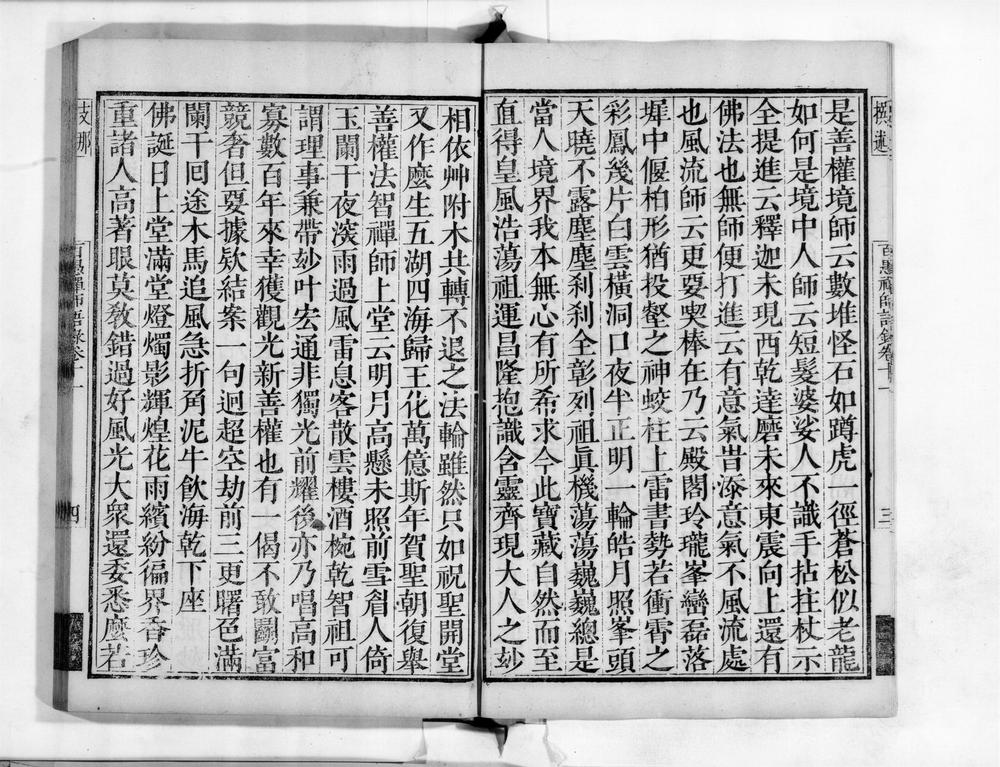 是善權境師云數堆怪石如蹲虎一徑蒼松似老龍
如何是境中人師云短髮婆娑人不識手拈拄杖示
全提進云釋迦未現西乾達磨未來東震向上還有
佛法也無師便打進云有意氣旹添意氣不風流處
也風流師云更要喫棒在乃云殿閣玲瓏峯巒磊落
墀中偃柏形猶投壑之神蛟柱上雷書勢若衝霄之
彩鳳幾片白雲橫洞口夜半正明一輪皓月照峯頭
天曉不露塵塵刹刹全彰列祖眞機蕩蕩巍巍總是
當人境界我本無心有所希求今此寶藏自然而至
直得皇風浩蕩祖運昌隆抱識含靈齊現大人之妙
相依艸附木共轉不退之法輪雖然只如祝聖開堂
又作麼生五湖四海歸王化萬億斯年賀聖朝復舉
善權法智禪師上堂云明月高懸未照前雪眉人倚
玉闌干夜深雨過風雷息客散雲樓酒椀乾智祖可
謂理事兼帶妙叶宏通非獨光前耀後亦乃唱高和
寡數百年來幸獲觀光新善權也有一偈不敢鬭富
競奢但要據欵結案一句迥超空劫前三更曙色滿
闌干回途木馬追風急折角泥牛飲海乾下座
佛誕日上堂滿堂燈燭影輝煌花雨繽紛徧界香珍
重諸人高著眼莫敎錯過好風光大衆還委悉麼若
百愚禪師語錄卷十一
三
支那
百愚禪師語錄卷十一
四